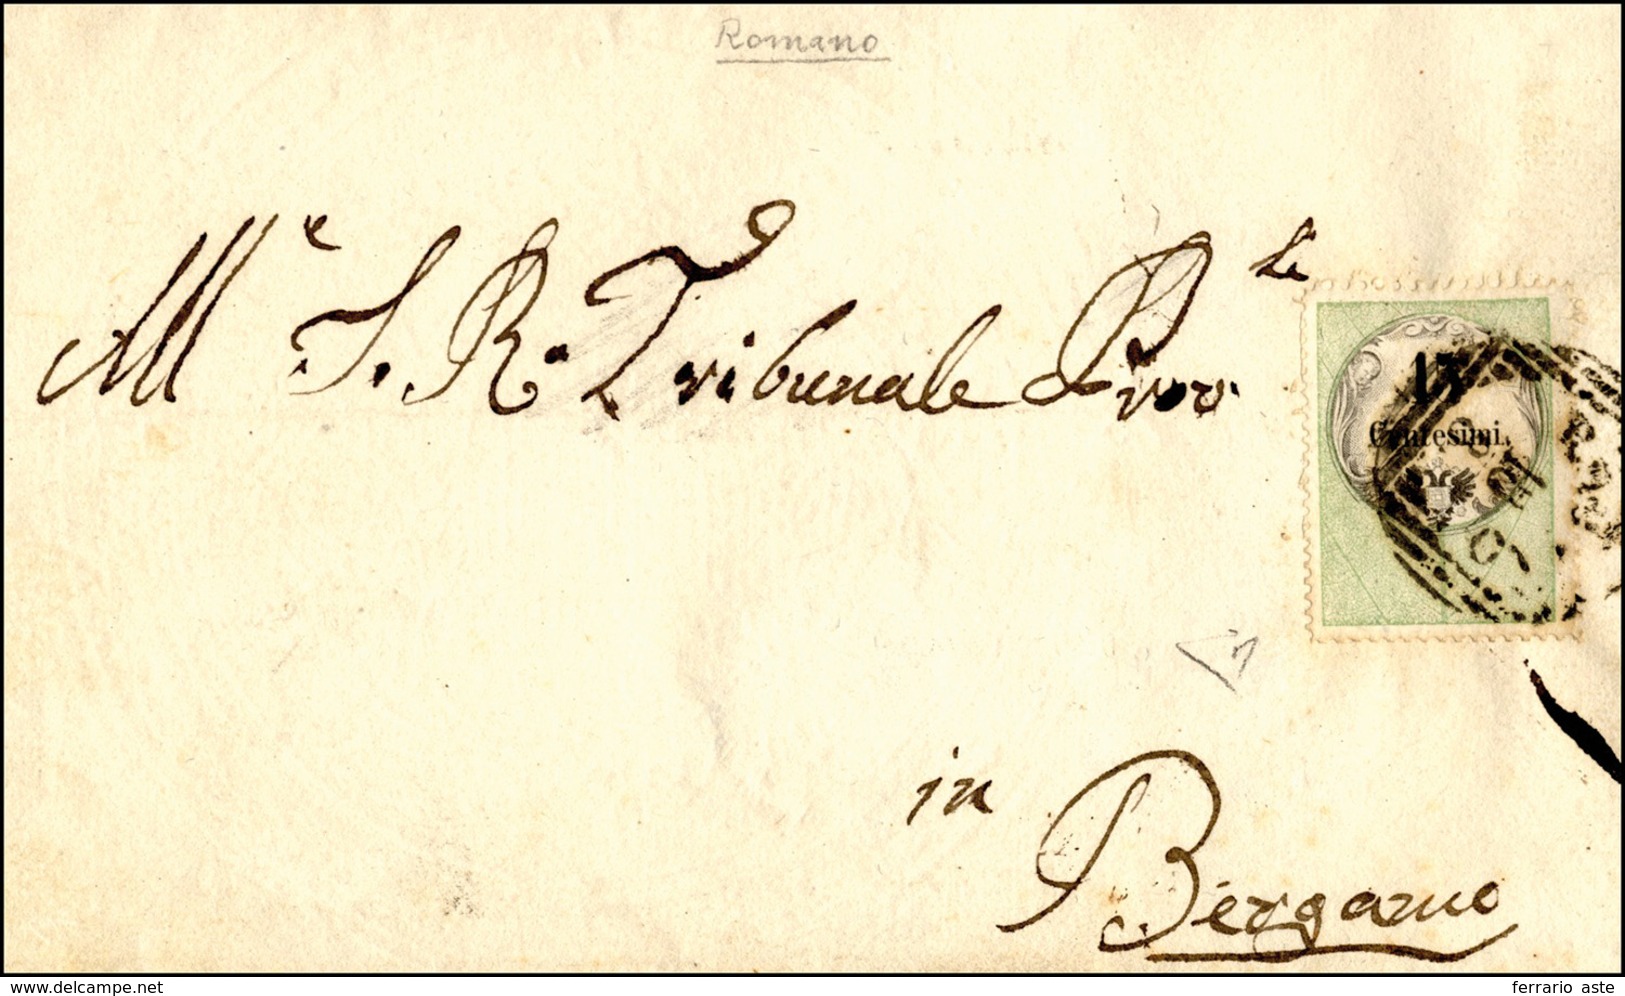 Romano
All'e I. R. Tribunale Prov le
15
Centesimi.
in
Bergamo
delcampe.net
ferrario aste